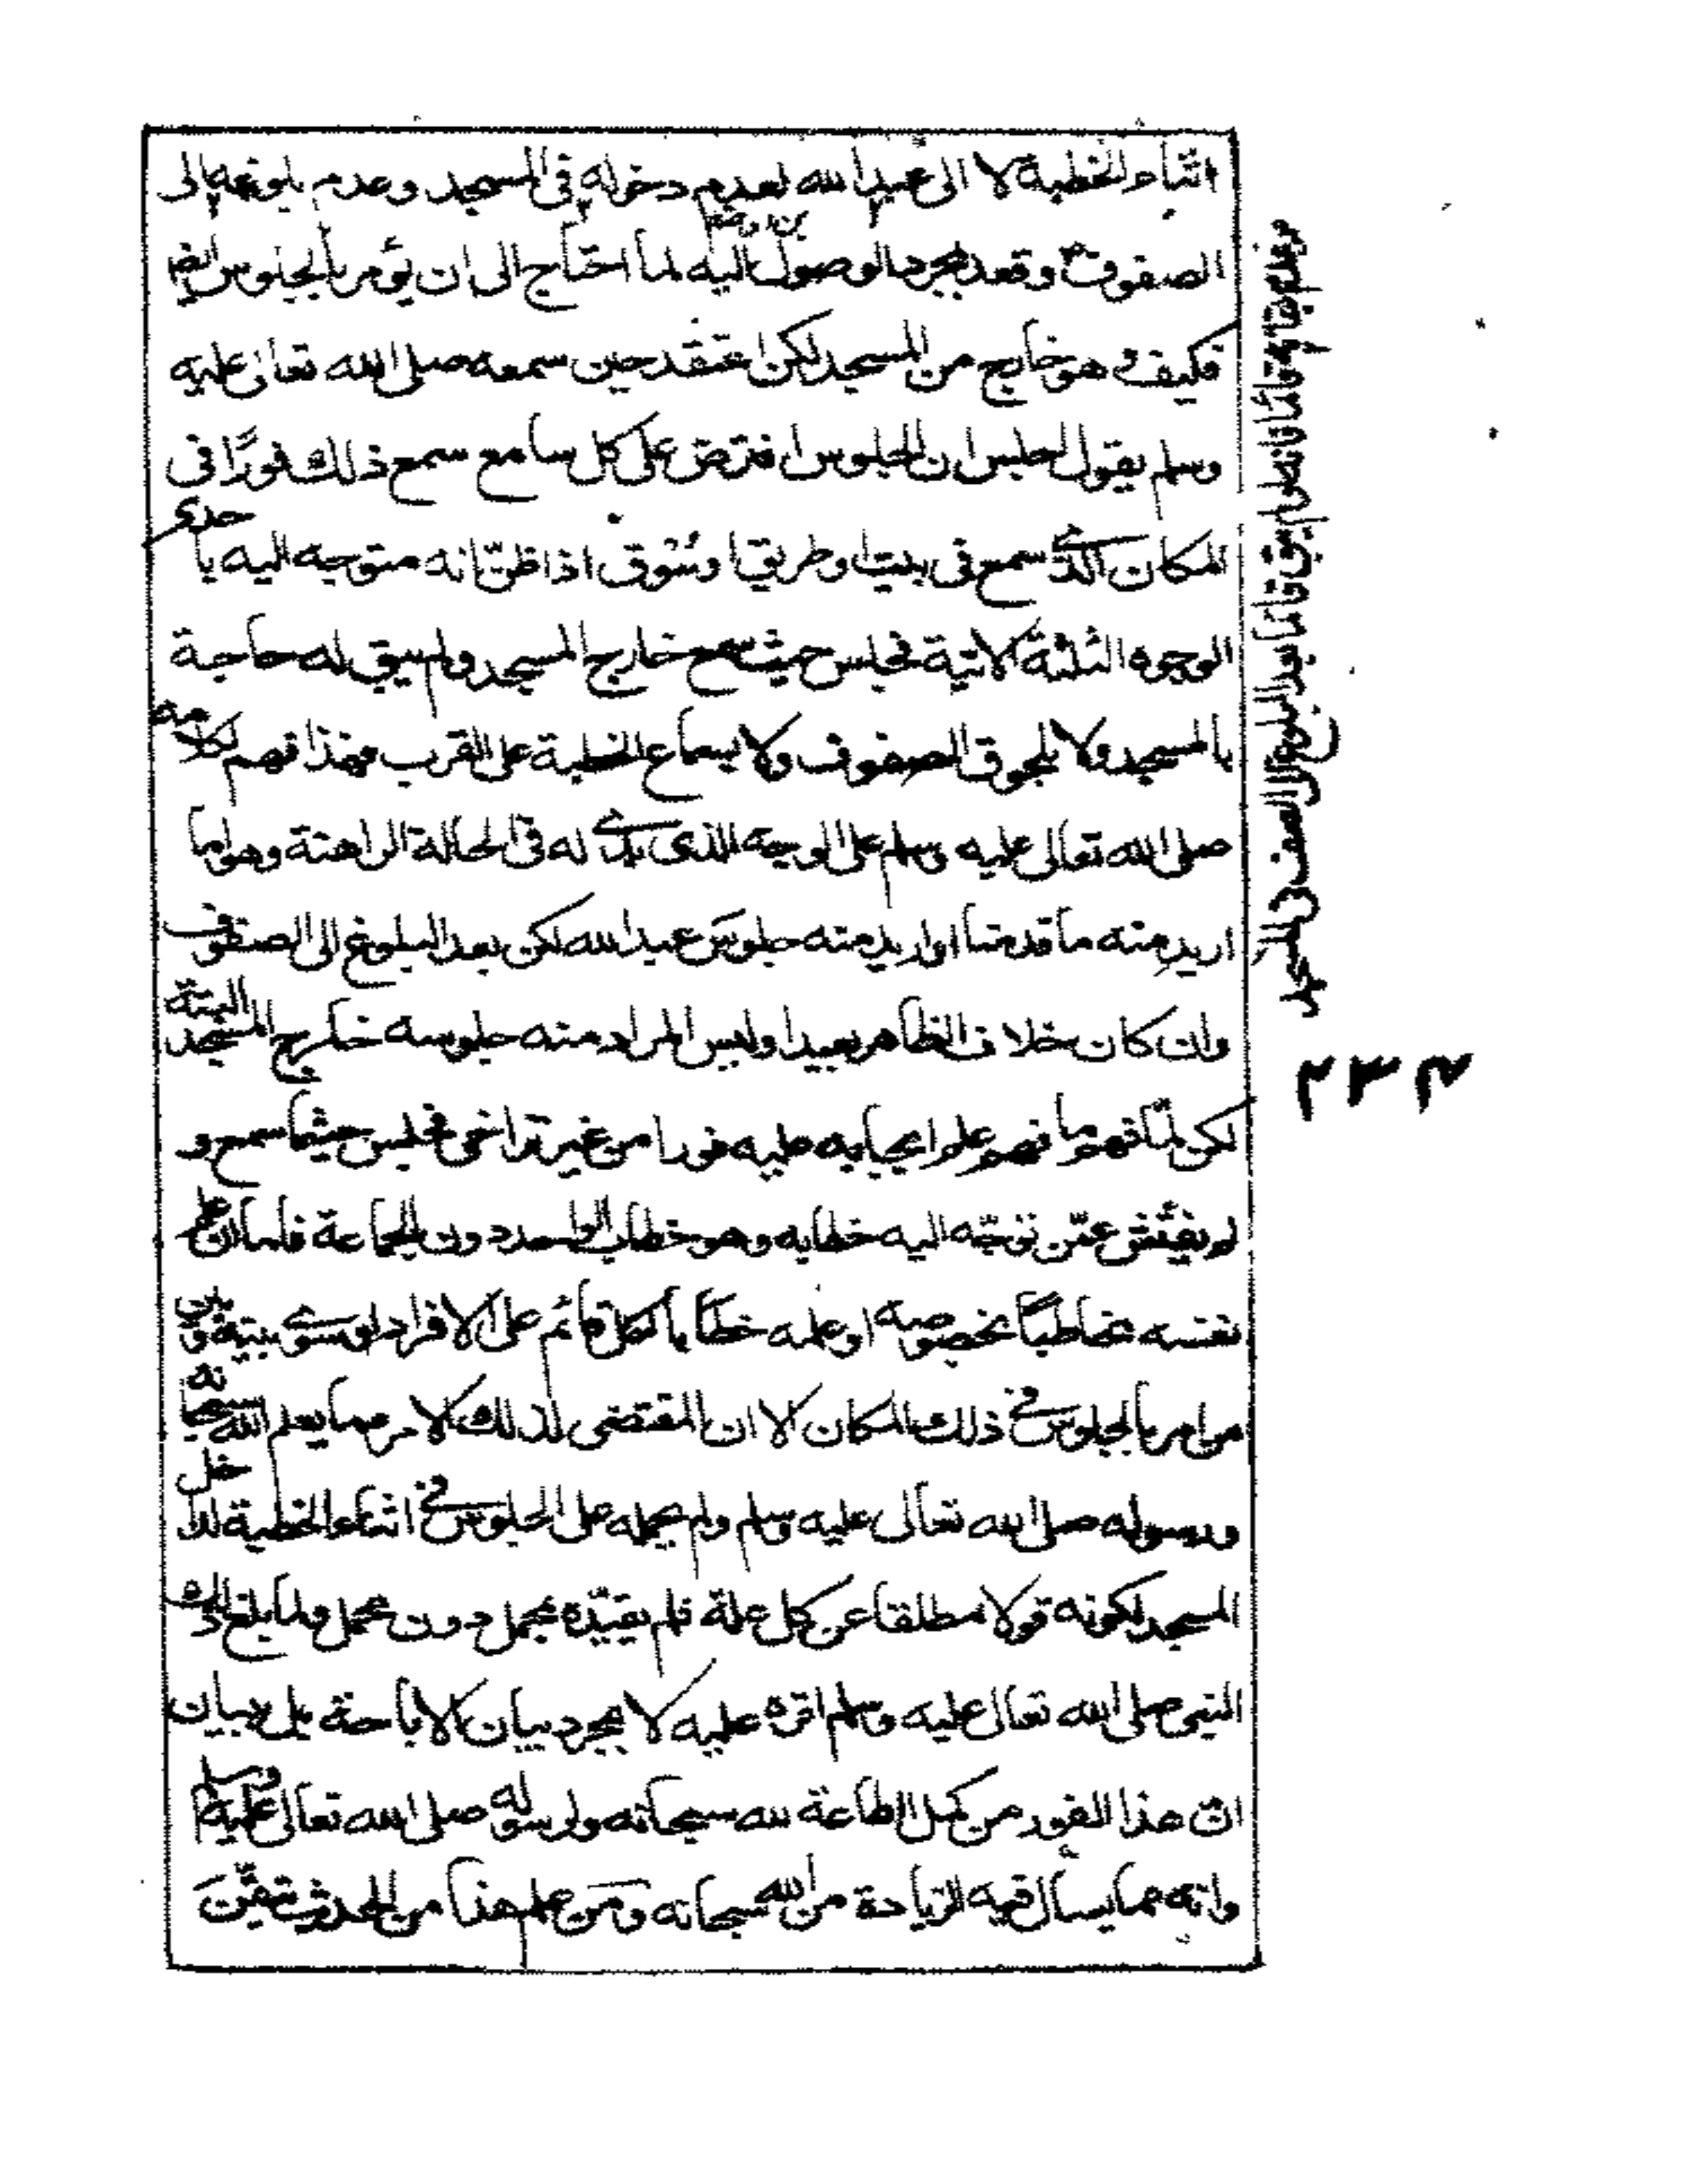 اثناء الخطبة لا الى عبد الله لعدم دخوله فى المسجد وعدم بلوغه الى
الصفوف وقعد بمجرد الوصول اليه لما احتاج الى ان يؤمر بالجلوس ايضا
فكيف وهو خارج من المسجد لكن اعتقد حين سمعه صلى الله تعالى عليه
وسلم يقول اجلس ان الجلوس افترض على كل سامع سمع ذلك فورًا فى
المكان الذى سمع فى بيت او طريق او سُوق اذا ظنّ انه متوجه اليه باحدى
الوجوه الثلثة الاتية فجلس حيث سمع خارج المسجد ولم يبق له حاجة
بالمسجد ولا بلحوق الصفوف ولا بسماع الخطبة على القرب فهذا فهم لكلامه
صلى الله تعالى عليه وسلم على الوجه الذى بدى له فى الحالة الراهنة وهو اما
اريد منه ما قدمنا او اريد منه جلوس عبد الله لكن بعد البلوغ الى الصفوف
وان كان خلاف الظاهر بعيدا وليس المراد منه جلوسه خارج المسجد البتة
لكن لما فهم ما فهم علم ايجابه عليه فورا من غير تراخى فجلس حيثما سمع و
لم يفتّش عمّن توجّه اليه خطابه وهو خطاب الواحد دون الجماعة فاما ان علم
نفسه مخاطباً بخصوصه او علمه خطابا لكل قائم على الافراد او سوى بينه وبين
من امر بالجلوس فى ذلك المكان لان المقتضى لذلك الامر مما يعلم الله سبحانه
ورسوله صلى الله تعالى عليه وسلم ولم يحمله على الجلوس فى اثناء الخطبة لداخل
المسجد لكونه قولا مطلقا عن كل علة فلم يقيّده بمحمل دون محمل ولما بلغ ذلك
النبى صلى الله تعالى عليه وسلم اقره عليه لا بمجرد بيان الاباحة بل ببيان
ان هذا الفور من كمال الطاعة لله سبحانه ولرسوله صلى الله تعالى عليه وسلم
وانه مما يسأل فيه الزيادة من الله سبحانه ومن علم هذا من الحديث تيقّن
وعدم بقائه قائما فانه لو بقى قائما بعد البلوغ الى الصف فى المسجد